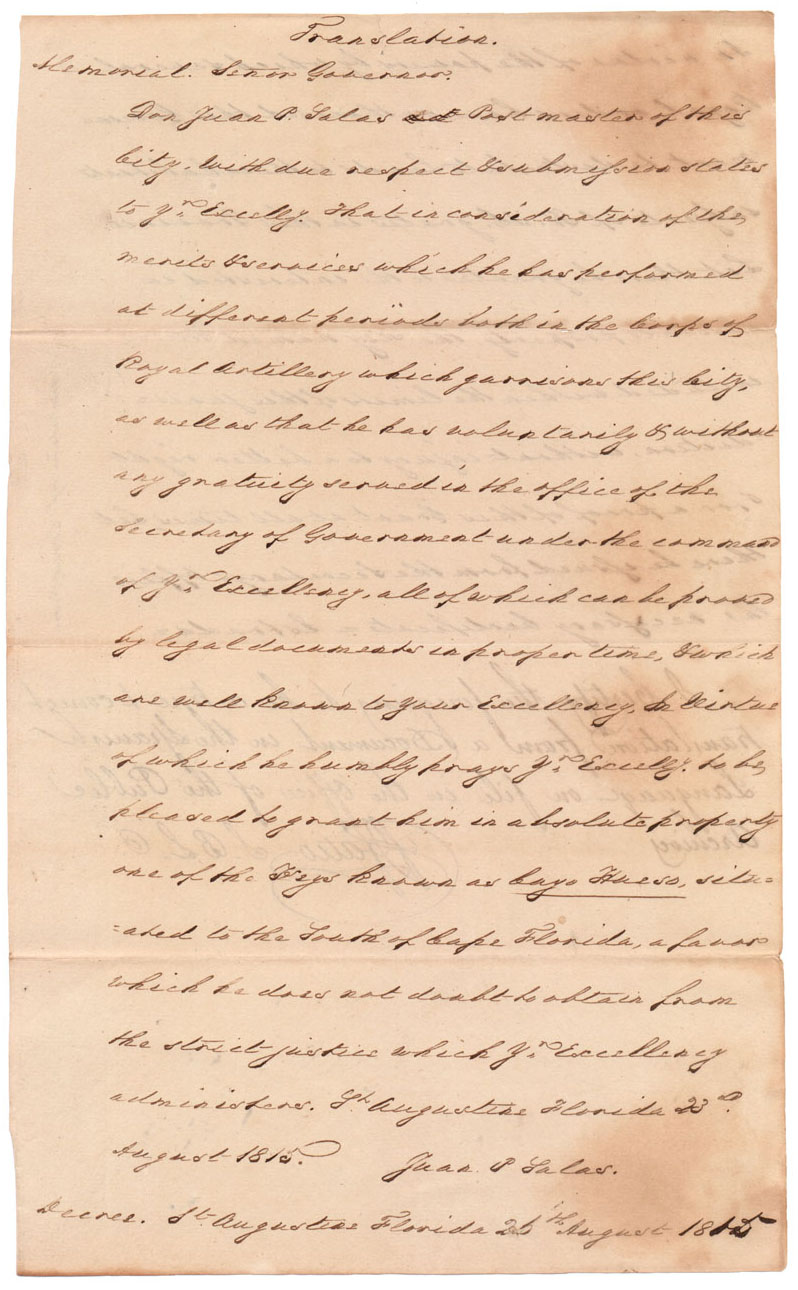 Translation.
Memorial. Señor Governor.
Don Juan P. Salas Post master of this
City, with due respect & submission states
to Yr. Excelly. That in consideration of the
merits & services which he has performed
at different periods both in the Corps of
Royal Artillery which garrisons this City,
as well as that he has voluntarily & without
any gratuity served in the office of the
Secretary of Government under the command
of Yr. Excellency, all of which can be proved
by legal documents in proper time, & which
are well known to Your Excellency, In Virtue
of which he humbly prays Yr. Excelly. to be
pleased to grant him in absolute property
one of the Keys known as Cayo Hueso, situ=
=ated to the South of Cape Florida, a favor
which he does not doubt to obtain from
the strict justice which Yr. Excellency
administers. St. Augustine Florida 23d.
August 1815. Juan P Salas.
Decree. St. Augustine Florida 26th August 1815